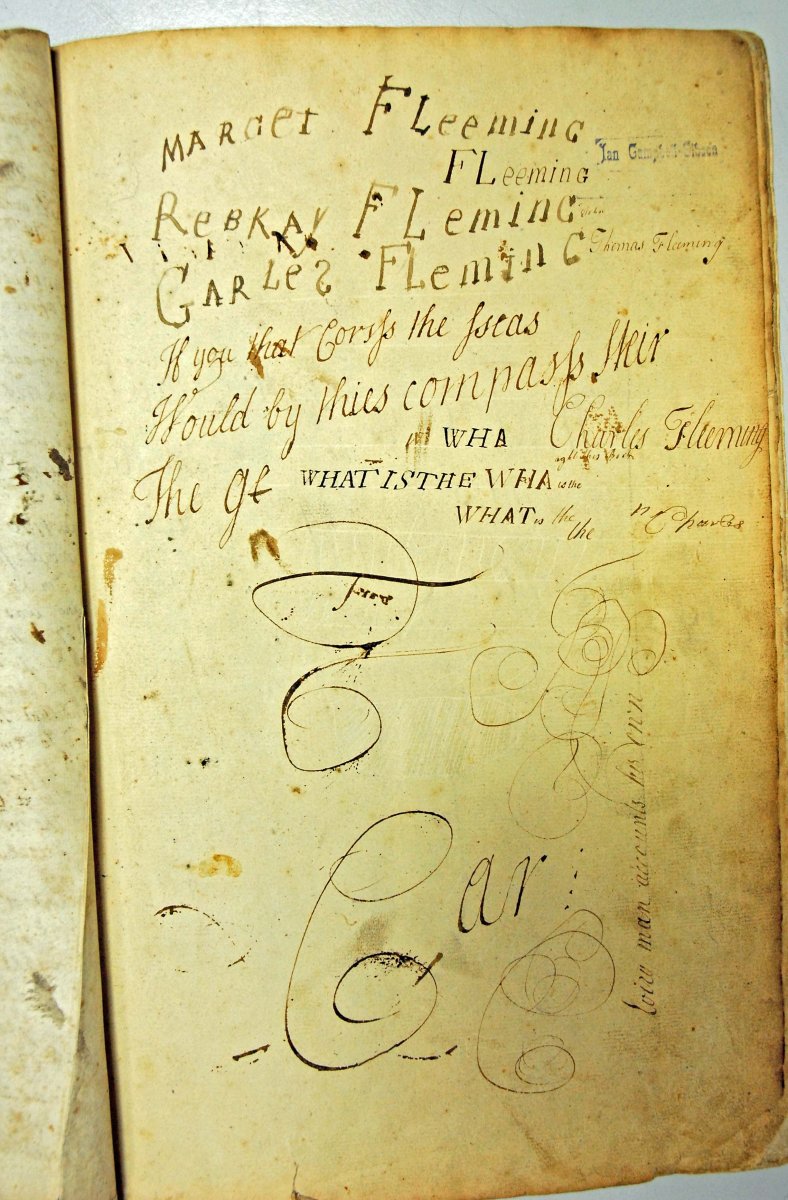 MARGET FLeeming
FLeeming
Jan Campbell-Gibson
REBKAY FLeming
CARLES FLeming
Thomas Fleming
If you that Corsſs the ſseas
Would by thies compasſs ſteir
WHA Charles Fleeming
The ge WHAT IS THE WHA is the
WHAT is the the
n Charles
Car
man accounts his own